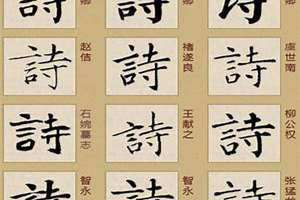 詩 卿 詩 卿 詩 卿
詩 赵佶 詩 褚遂良 詩 虞世南
詩 石婉墓志 詩 王献之 詩 柳公权
詩 智永 詩 智永 詩 张猛